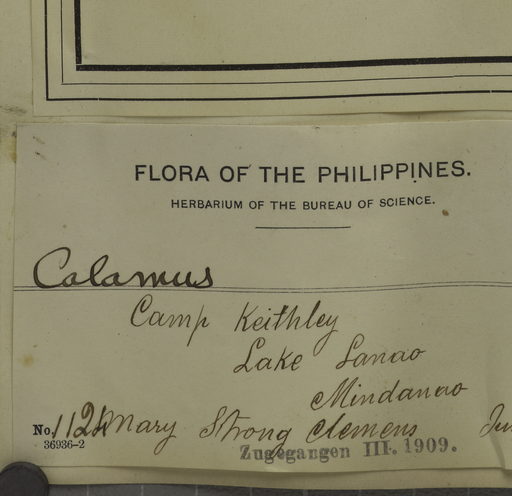 FLORA OF THE PHILIPPINES.
HERBARIUM OF THE BUREAU OF SCIENCE.
Calamus
Camp Keithley
Lake Lanao
Mindanao
No. Mary Strong Clemens
36936-2
Zugegangen III. 1909.